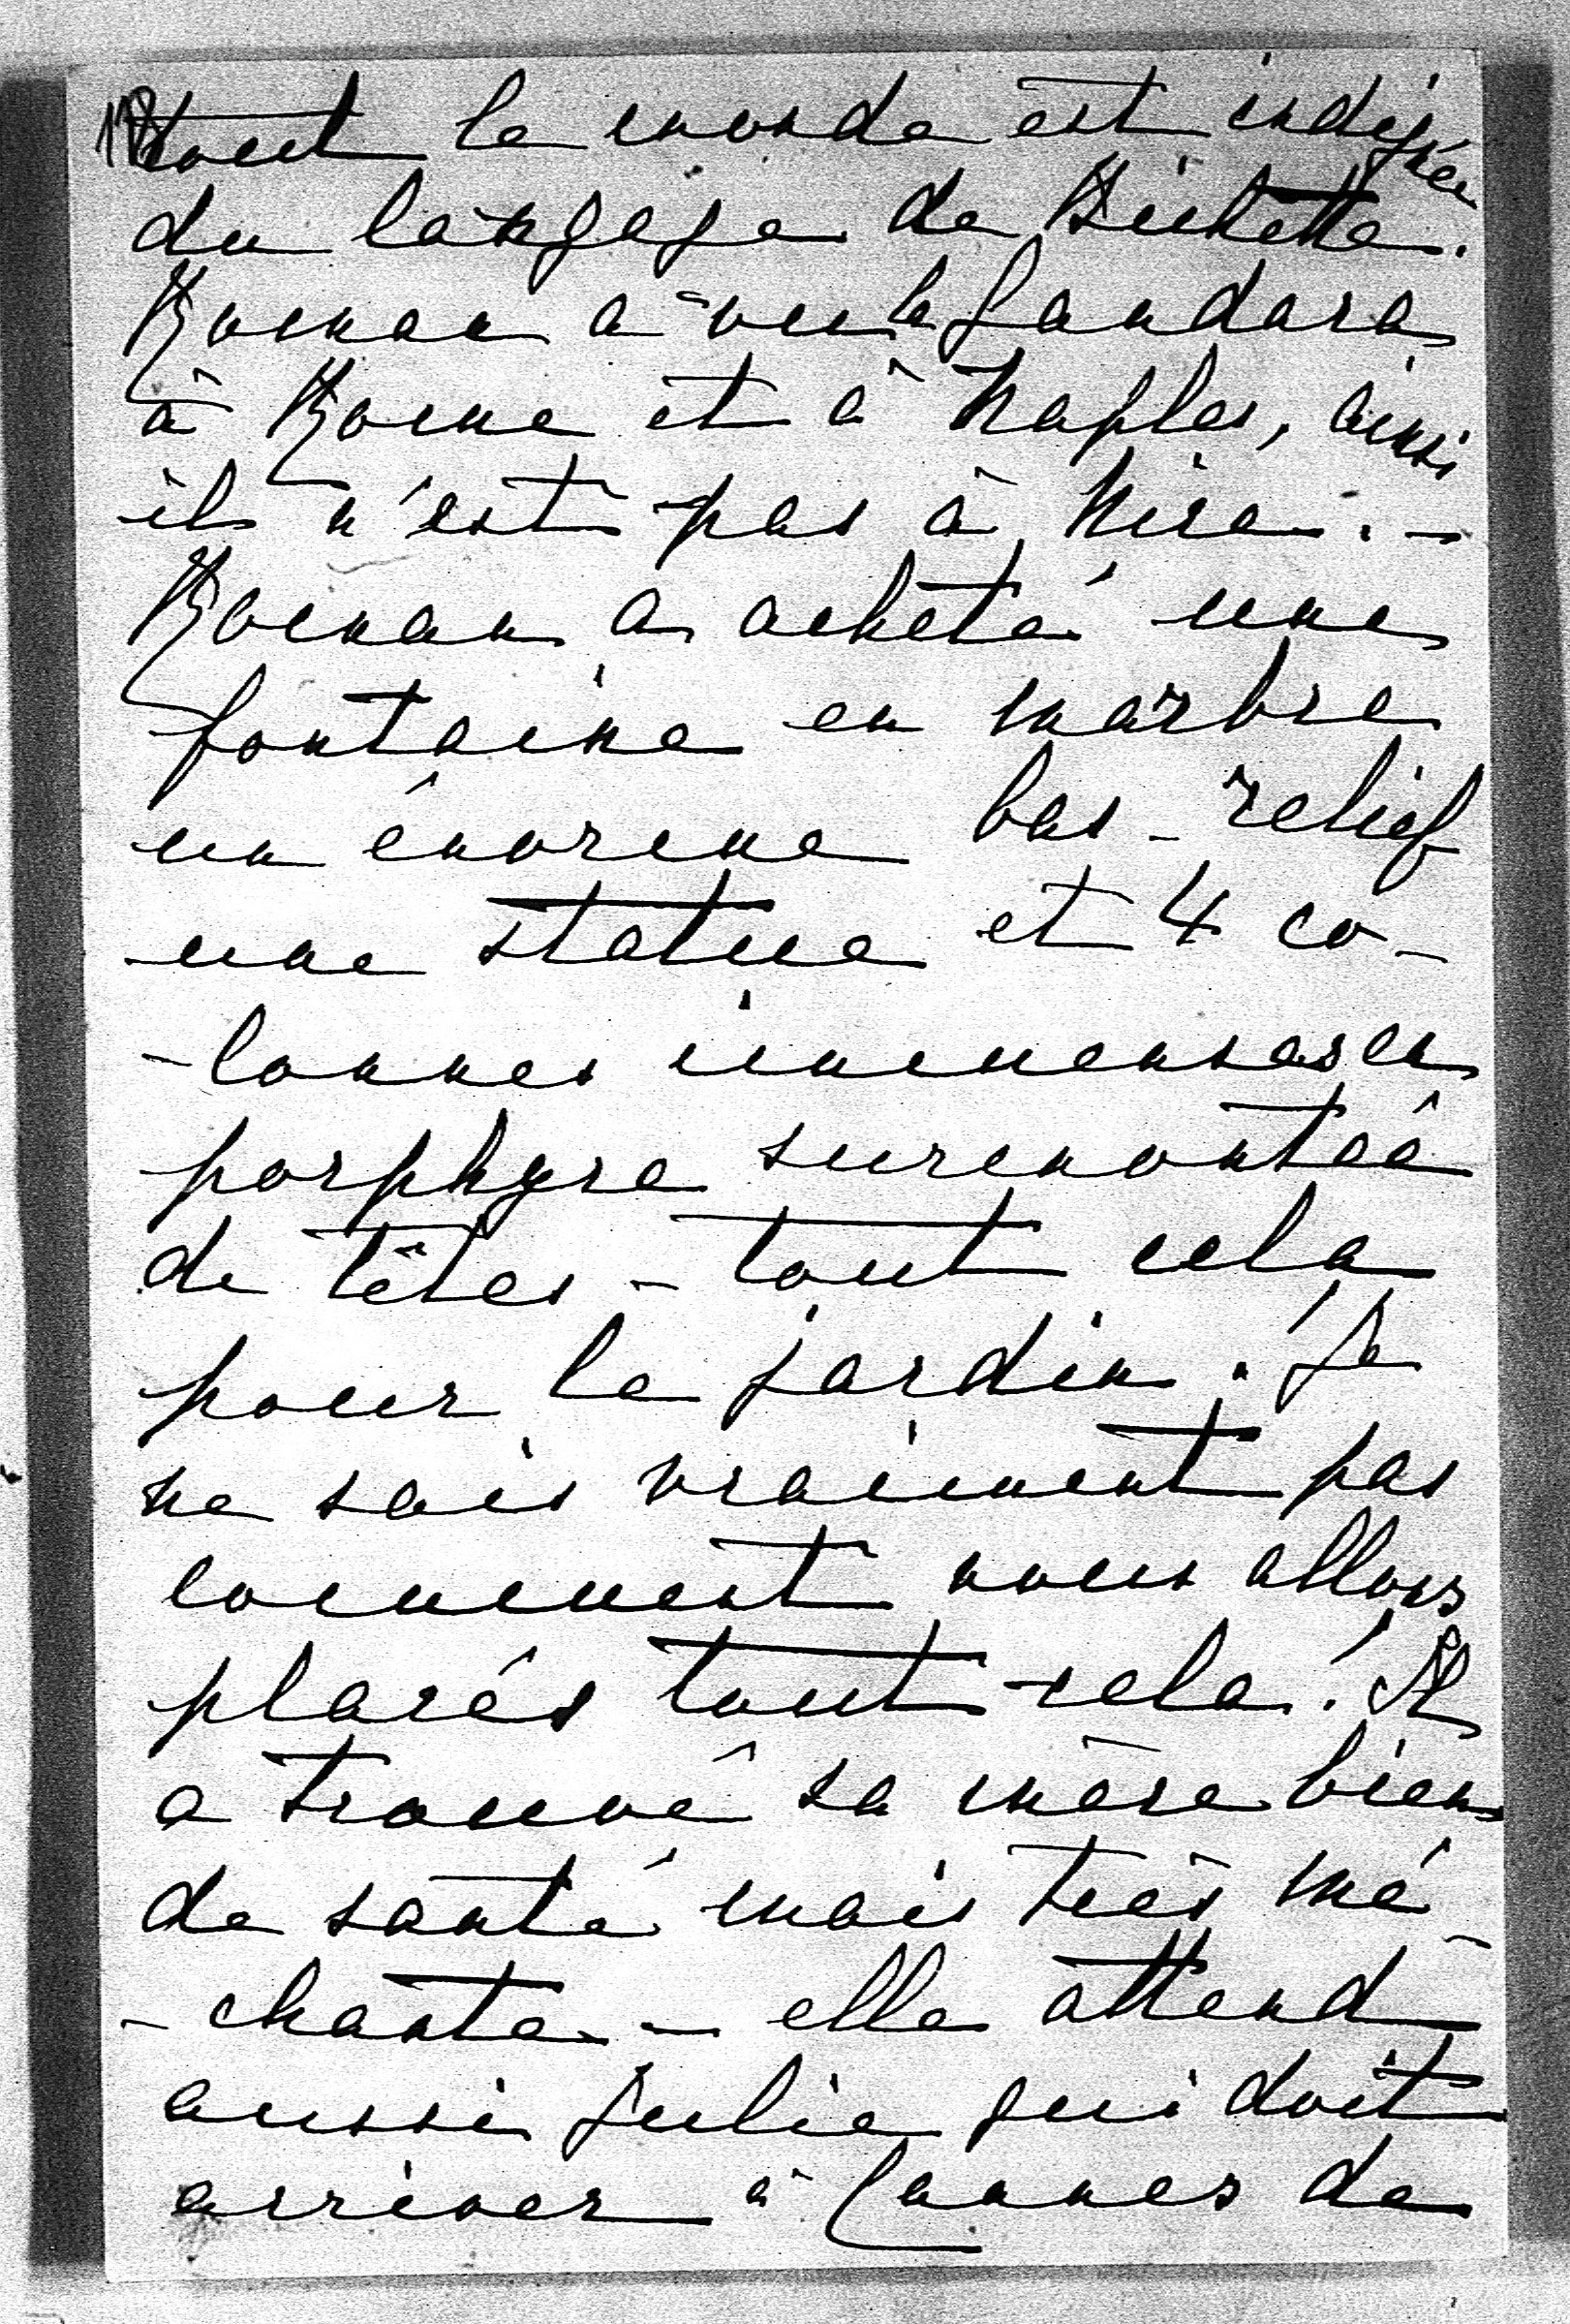 tout le monde est indignée
du langage de Bichette.
Roman a vu la Gandara
à Rome et à Naples, ainsi
il n'est pas à Nice. –
Roman a acheté une
fontaine en marbre
un énorme bas-relief
une statue et 4 co-
-lonnes immenses en
porphyre surmontée
de têtes – tout cela
pour le jardin. Je
ne sais vraiment pas
comment nous allons
placés tout cela. Il
a trouvé sa mère bien
de santé mais très mé-
-chante – elle attend
aussi Julie qui doit
arriver à Cannes de